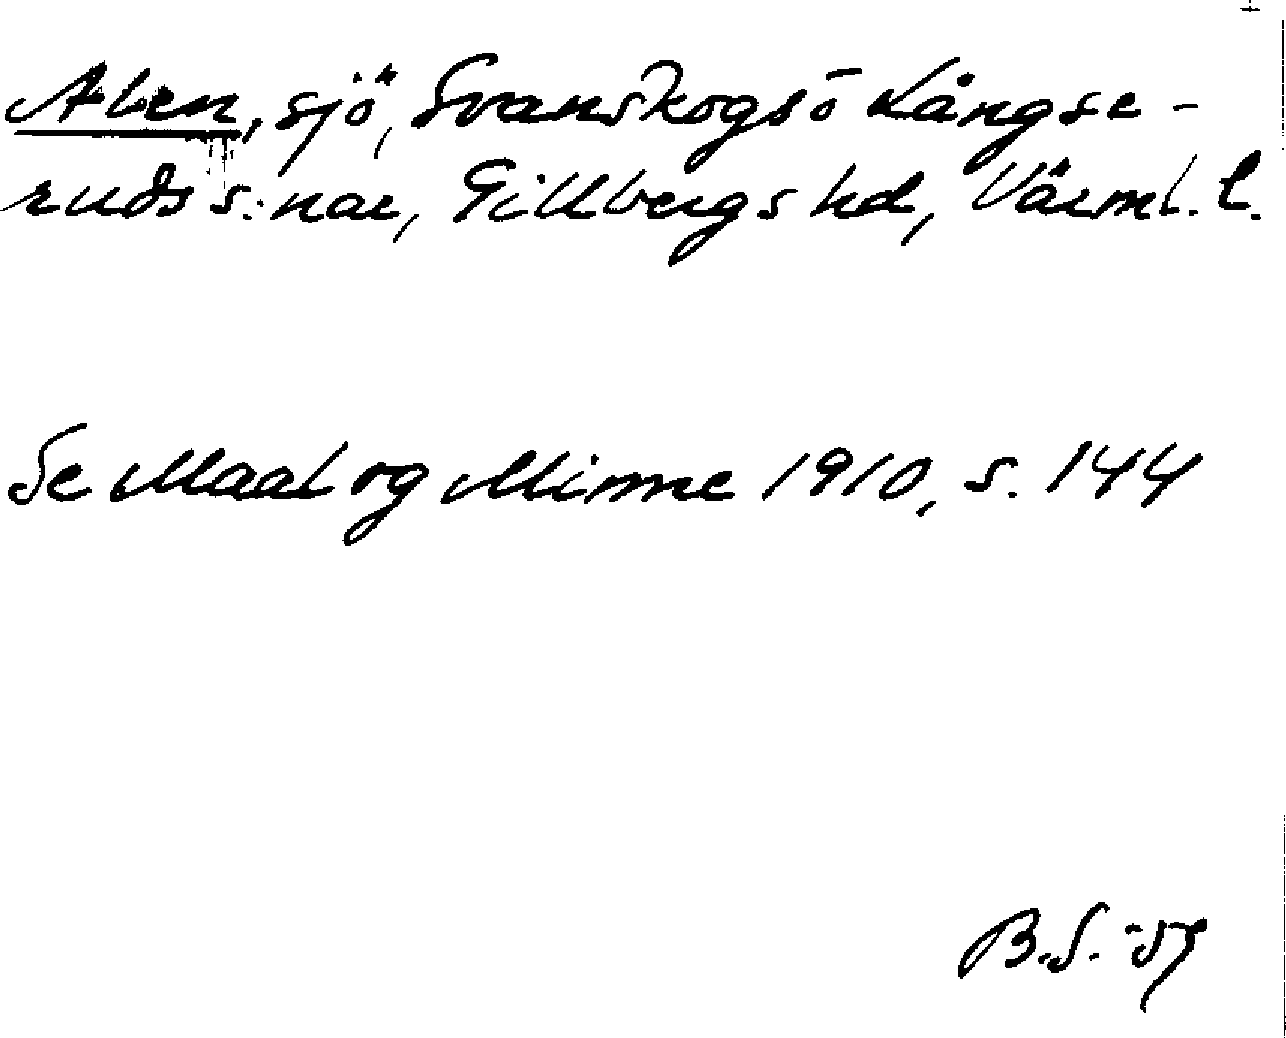 Aben, sjö, Svanskogs o Långse-
ruds s:nar, Gillbergs hd, Värml. l.
Se Maal og Minne 1910, s. 144
B.S.